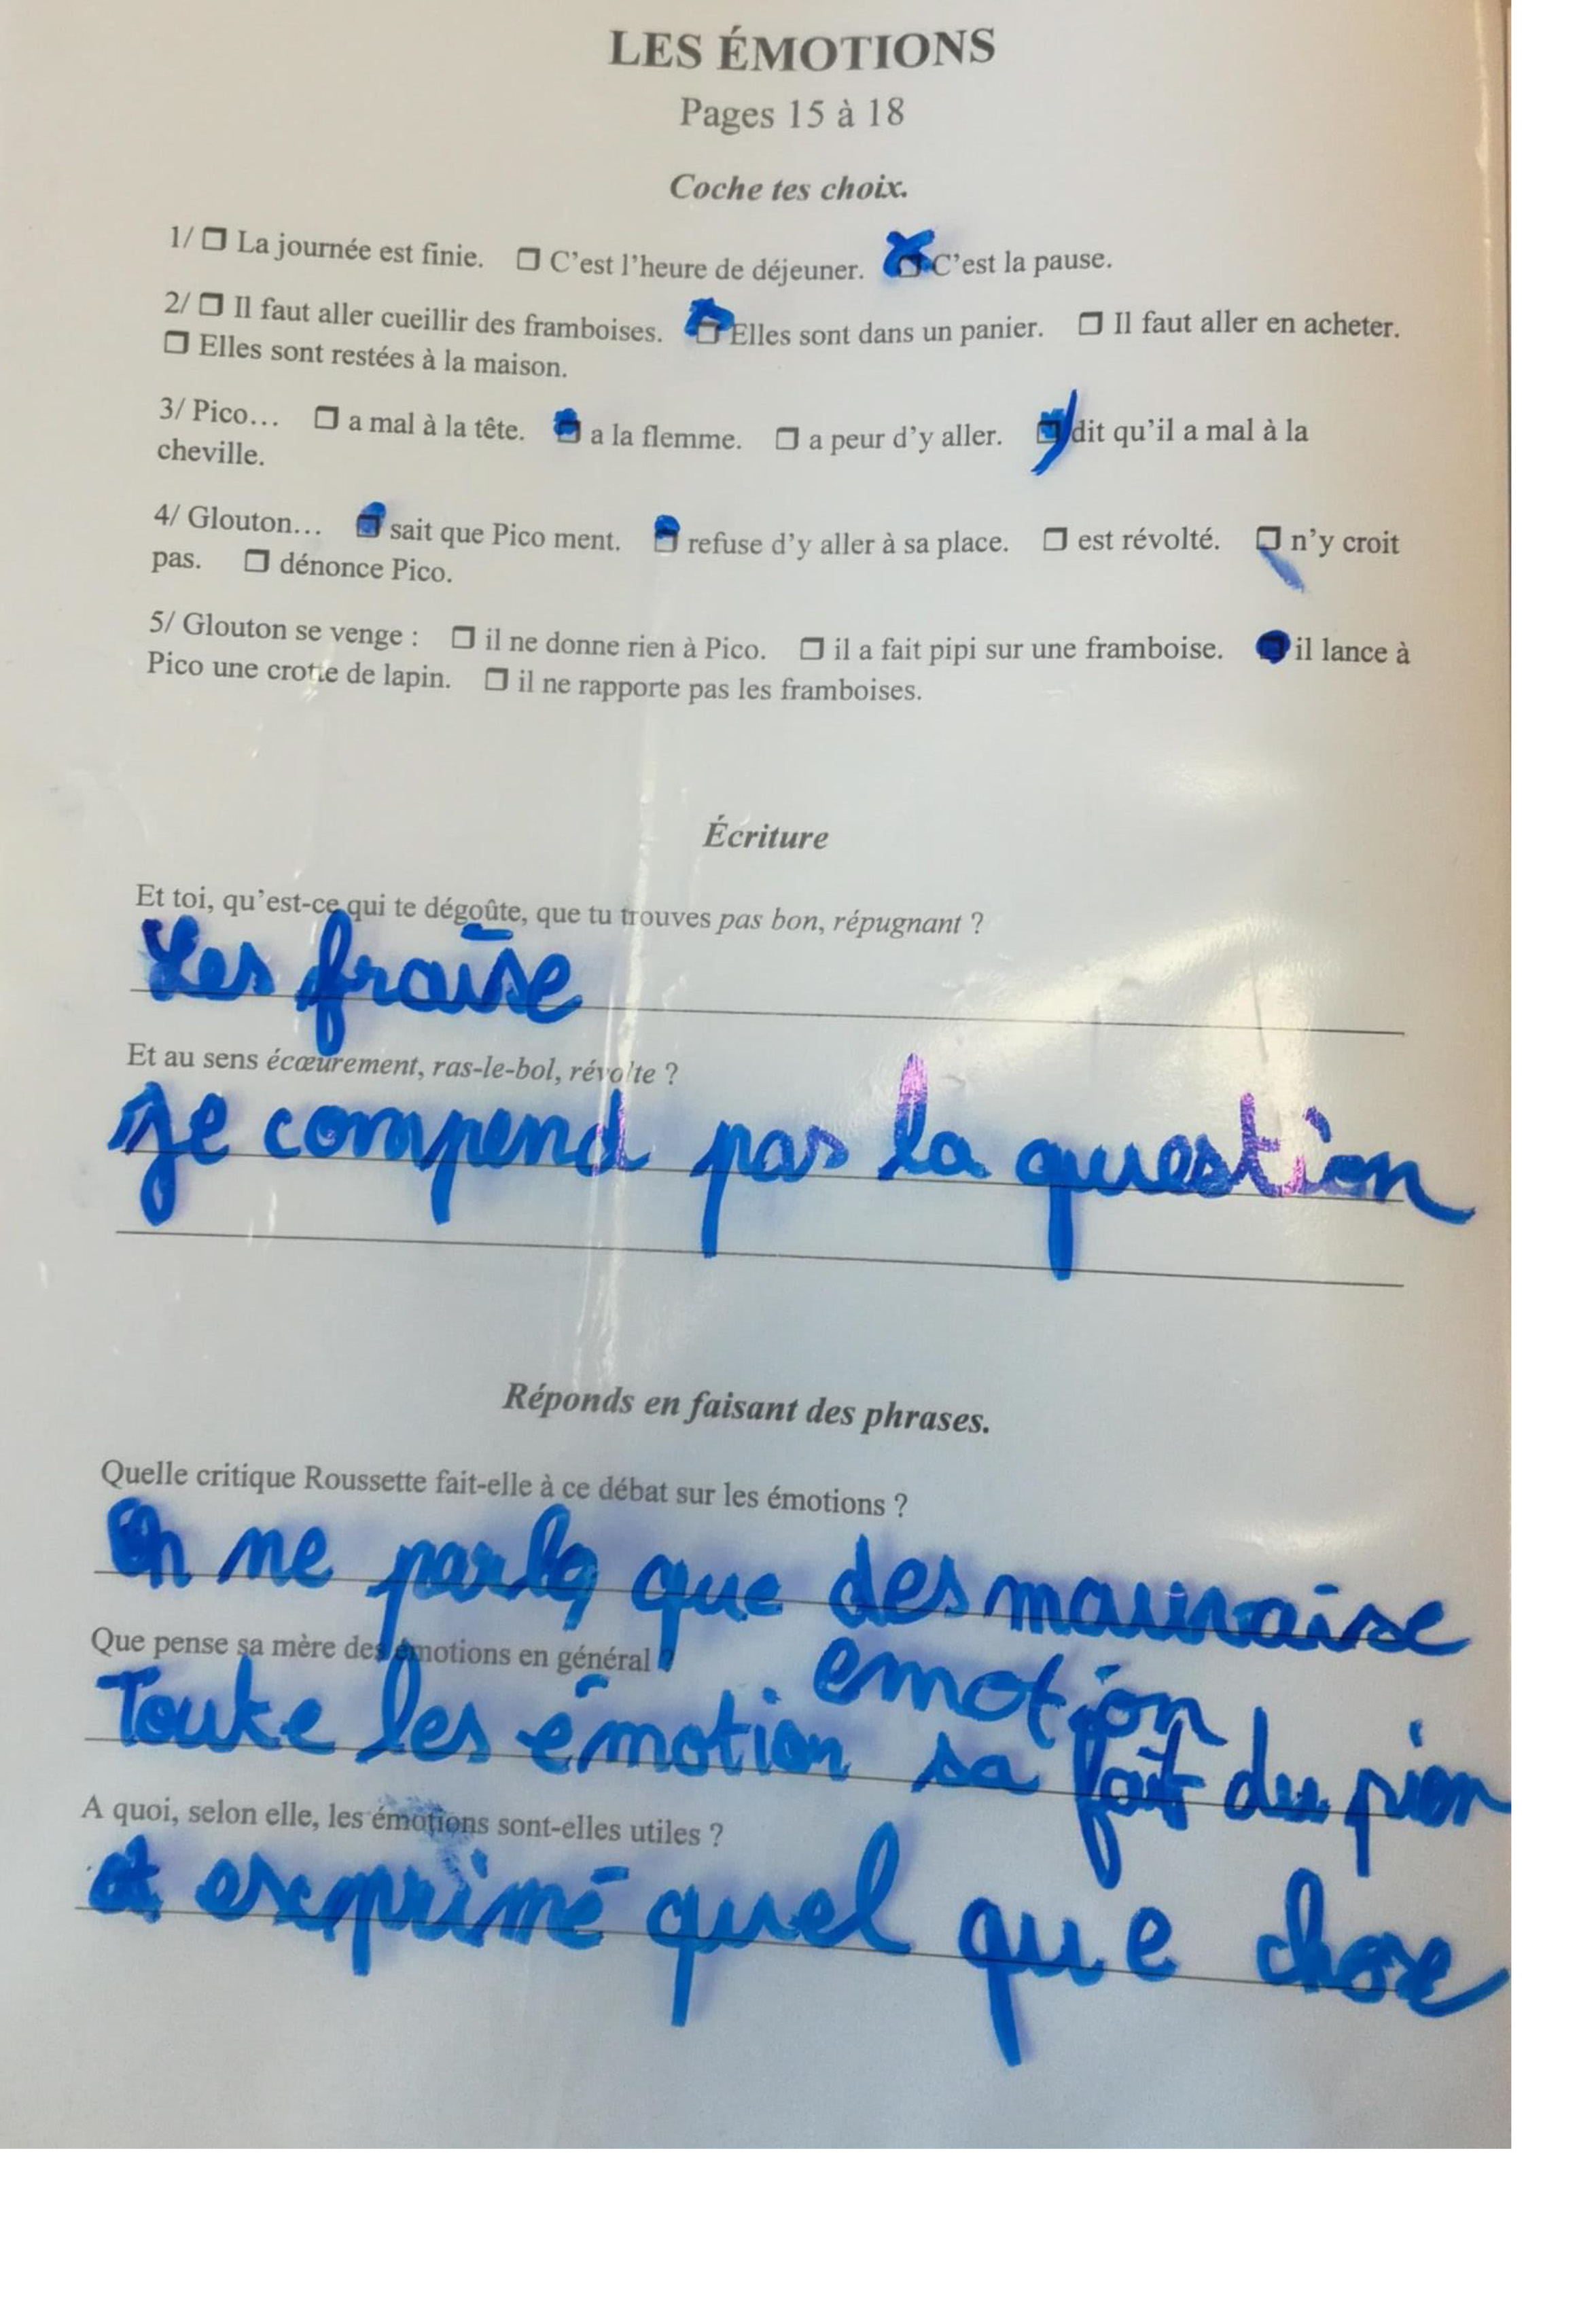 LES ÉMOTIONS
Pages 15 à 18
Coche tes choix.
1/ ❒ La journée est finie. ❒ C'est l'heure de déjeuner. ❒ C'est la pause.
2/ ❒ Il faut aller cueillir des framboises. ❒ Elles sont dans un panier. ❒ Il faut aller en acheter.
❒ Elles sont restées à la maison.
3/ Pico… ❒ a mal à la tête. ❒ a la flemme. ❒ a peur d'y aller. ❒ dit qu'il a mal à la
cheville.
4/ Glouton… ❒ sait que Pico ment. ❒ refuse d'y aller à sa place. ❒ est révolté. ❒ n'y croit
pas. ❒ dénonce Pico.
5/ Glouton se venge : ❒ il ne donne rien à Pico. ❒ il a fait pipi sur une framboise. ❒ il lance à
Pico une crotte de lapin. ❒ il ne rapporte pas les framboises.
Écriture
Et toi, qu'est-ce qui te dégoûte, que tu trouves pas bon, répugnant ?
Les fraise
Et au sens écœurement, ras-le-bol, révolte ?
Je compend pas la question
Réponds en faisant des phrases.
Quelle critique Roussette fait-elle à ce débat sur les émotions ?
On ne parle que des mauvaise
emotion
Que pense sa mère des émotions en général ?
Toute les émotion sa fait du pion
A quoi, selon elle, les émotions sont-elles utiles ?
exprimé quel que chose